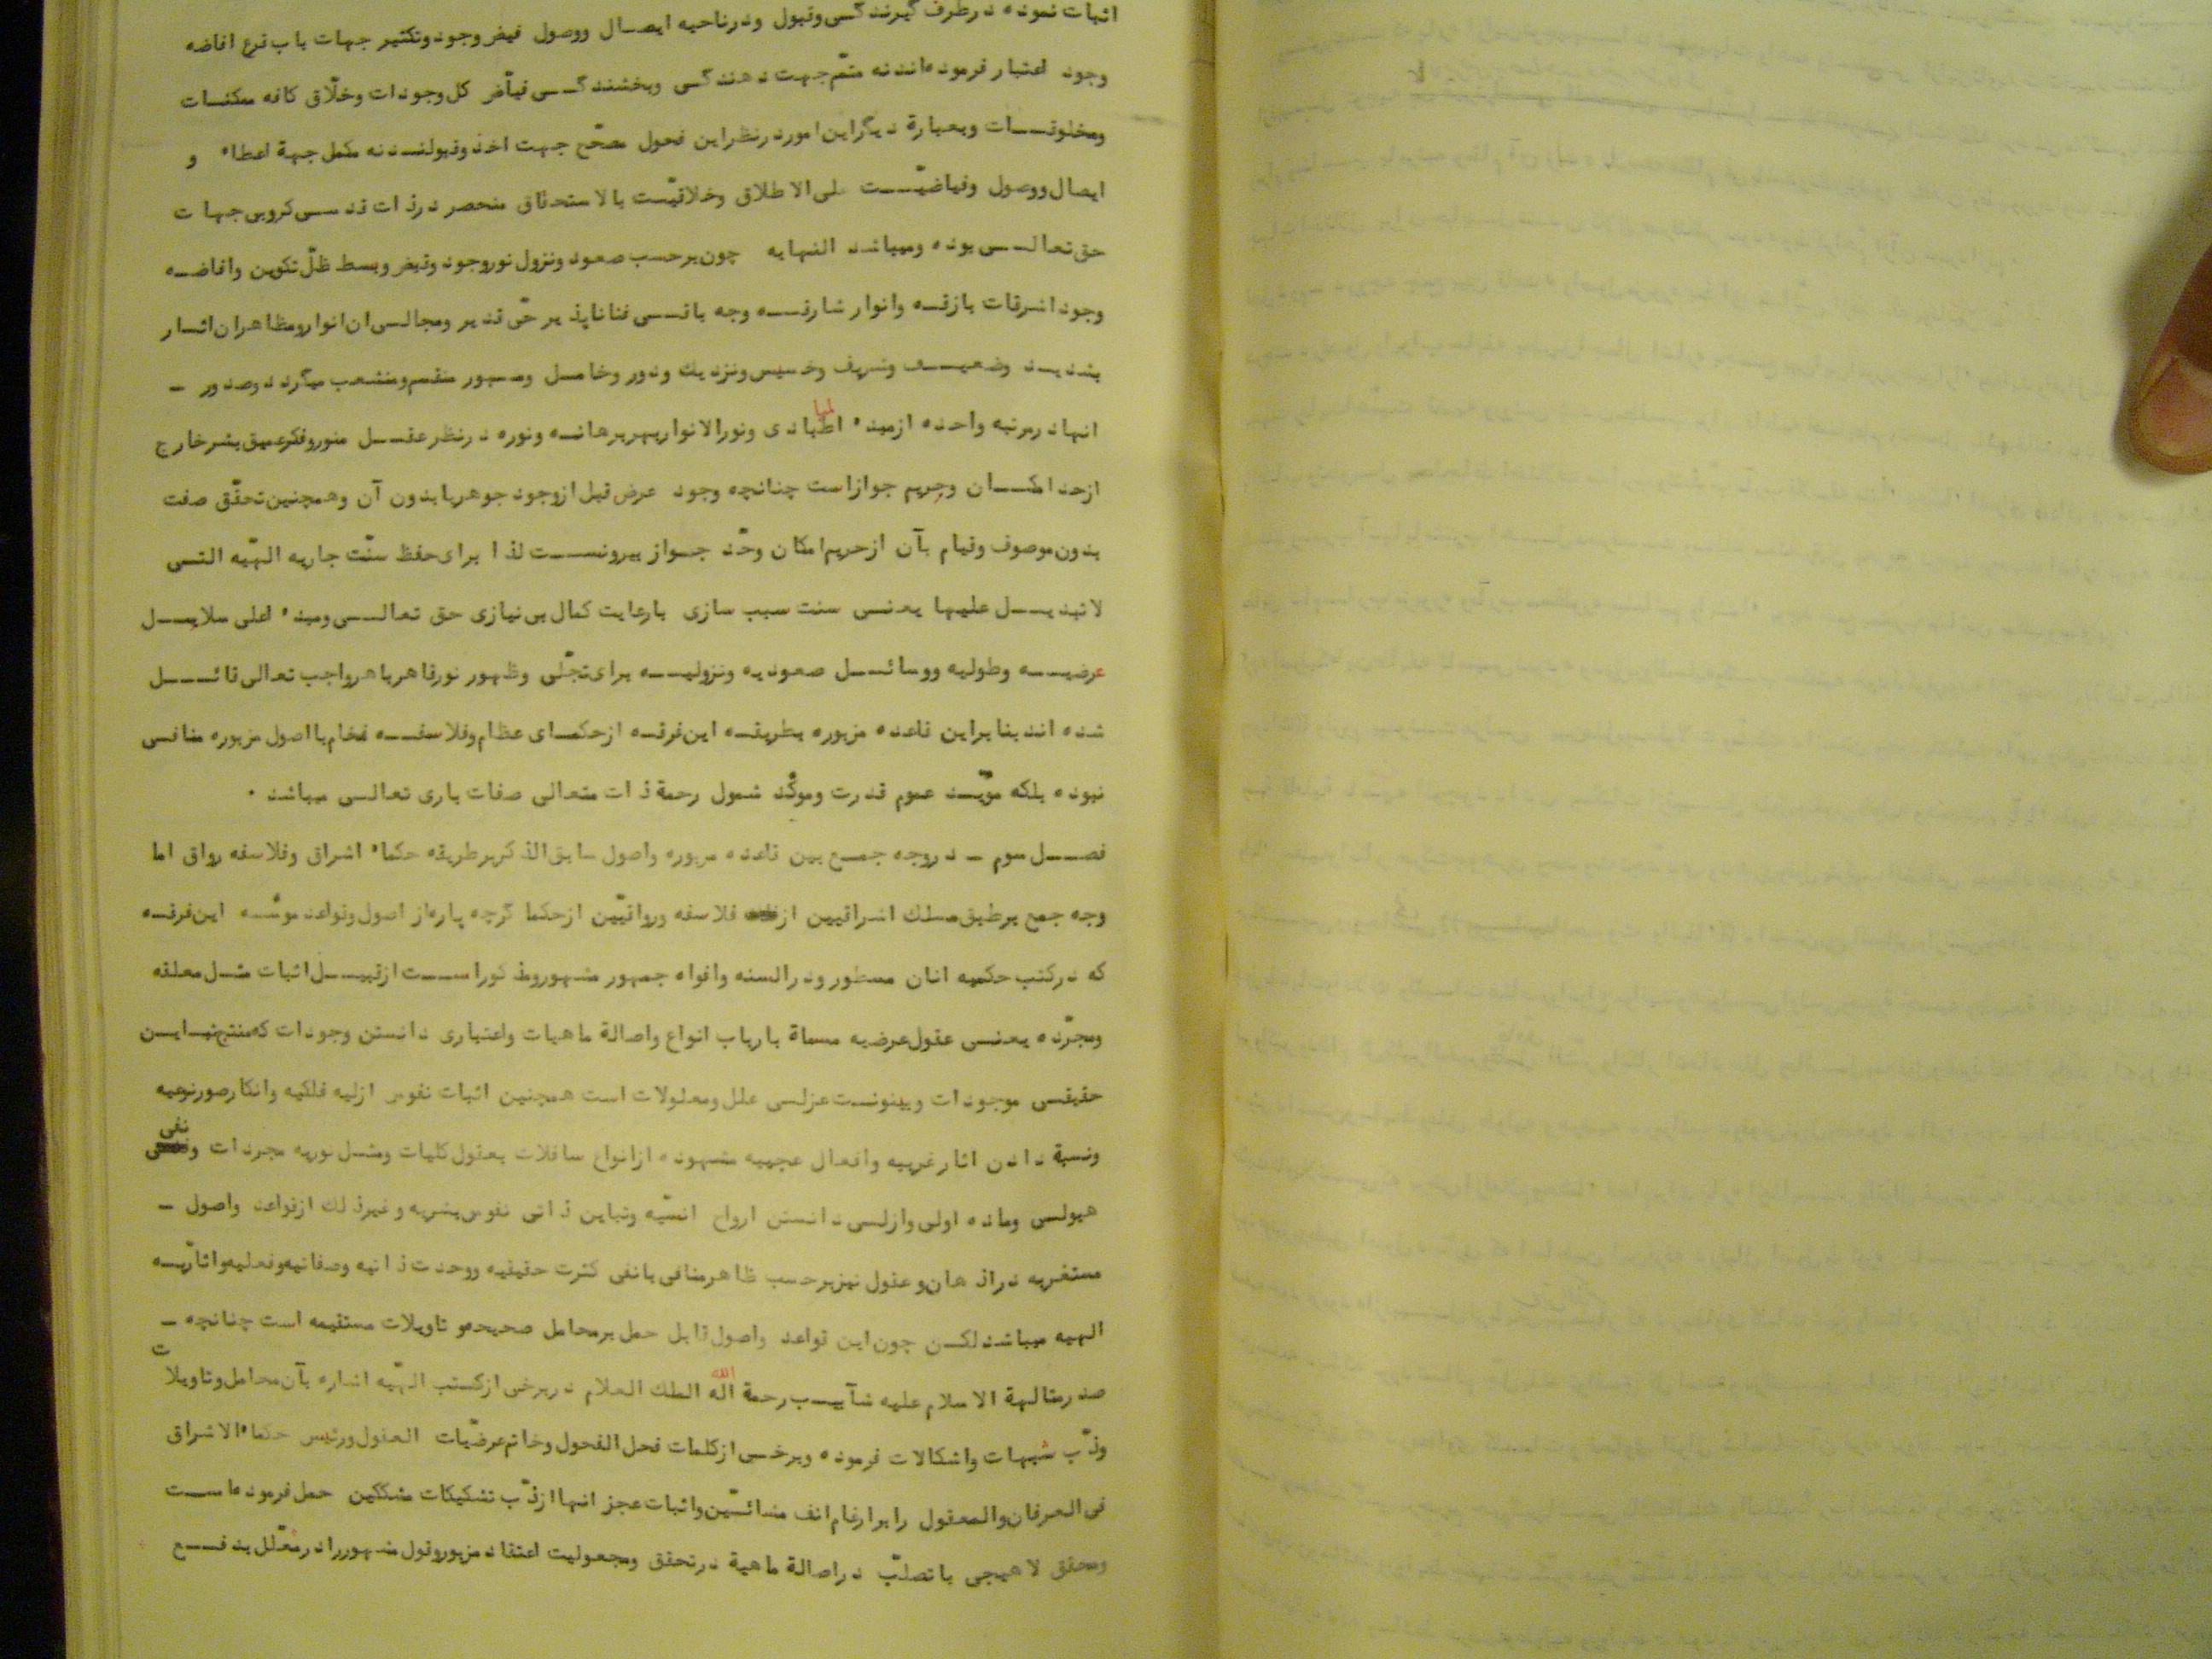 اثبات نموده در طرف گیرندگی و قبول و در ناحیه ایصال و وصول فیض وجود و تکثیر جهات باب قرع افاضه
وجود اعتبار فرموده‌اند نه متمّم جهت دهندگی و بخشندگی فیّاض کل وجودات و خلّاق کافه ممکنات
و مخلوقات و بعبارة دیگر این امور در نظر این فحول مصحّح جهت اخذ و قبولند نه مکمل جهة اعطاء و
ایصال و وصول و فیاضیّت علی الاطلاق و خلاقیّست بالاستحقاق منحصر در ذات قدسی کروبی جهات
حق تعالی بوده و میباشد النهایه چون بر حسب صعود و نزول نور وجود و قبض و بسط ظلّ تکوین و افاضه
وجود اشرقات بازقه و انوار شارقه وجه باقی فنا ناپذیر حّی قدیر و مجالی ان انوار و مظاهر ان اثار
بشدید و ضعیف و شریف و خسیس و نزدیك و دور و خامل و منقسم و منشعب میگردد و صدور -
انها در مرتبه واحده از مبدء المبادی و نور الانوار بهر برهانه و نوره در نظر عقل منور و فکر عمیق بشر خارج
از حد امکان و حریم جواز است چنانچه وجود عرض قبل از وجود جوهر یا بدون آن و همچنین تحقّق صفت
بدون موصوف و قیام بآن از حریم امکان و حّد جواز بیرونست لذا برای حفظ سنّت جاریه الهیّه التی
لا تبدیل علیها یعنی سنت سبب سازی با رعایت کمال بی نیازی حق تعالی و مبدء اعلی سلایل
عرضیه و طولیه و وسائل صعودیه و نزولیه برای تجلّی و ظهور نور قاهر باهر واجب تعالی قائل
شده اند بنابراین قاعده مزبوره بطریقه این فرقه از حکمای عظام و فلاسفه فخام با اصول مزبوره منافی
نبوده بلکه مویّد عموم قدرت و موکّد شمول رحمة ذات متعالی صفات باری تعالی میباشد .
فصل سوم - در وجه جمع بین قاعده مزبوره و اصول سابق الذکر بر طریقه حکماء اشراق و فلاسفه رواق اما
وجه جمع بر طبق مسلك اشراقیین از فلاسفه و رواقیّین از حکما گرچه پاره‌از اصول و قواعد موسّسه این فرقه
که در کتب حکمیه انان مسطور و در السنه و افواه جمهور مشهور و مذکور است از قبیل اثبات مثل معلقه
و مجرّده یعنی عقول عرضیه مسماة بارباب انواع و اصالة ماهیات و اعتباری دانستن وجودات که منتج تباین
حقیقی موجودات و بینونت عزلی علل و معلولات است همچنین اثبات نفوس ازلیه فلکیه و انکار صور نوعیه
و نسبة دادن اثار غریبه و افعال عجیبه مشهوده از انواع سافلات بعقول کلیات و مثل نوریه مجردات و نفی
هیولی و ماده اولی و ازلی دانستن ارواح انسیّه و تباین ذاتی نفوس بشریه و غیر ذلك از قواعد و اصول -
مستغربه در اذهان و عقول نیز بر حسب ظاهر منافی با نفی کثرت حقیقیه و وحدت ذاتیه و صفاتیه و فعلیه و اثاریّه
الهیه میباشد لکن چون این قواعد و اصول قابل حمل بر محامل صحیحه و تاویلات مستقیمه است چنانچه -
صدر متالهة الاسلام علیه شآبیب رحمة الله الملك العلام در برخی از کتب الهیّه اشاره بآن محامل و تاویلات
و ذّب شبهات و اشکالات فرموده و برخی از کلمات فحل الفحول و خاتم عرضیّات العقول و رئیس حکماء الاشراق
فی العرفان و المعقول را بر ارغام انف مشائیّین و اثبات عجز انها از ذّب تشکیکات مشککین حمل فرموده است
و محقق لاهیجی با تصلّب در اصالة ماهیة در تحقق و مجعولیت اعتقاد مزبور و قول مشهور را در معلّل بدفع